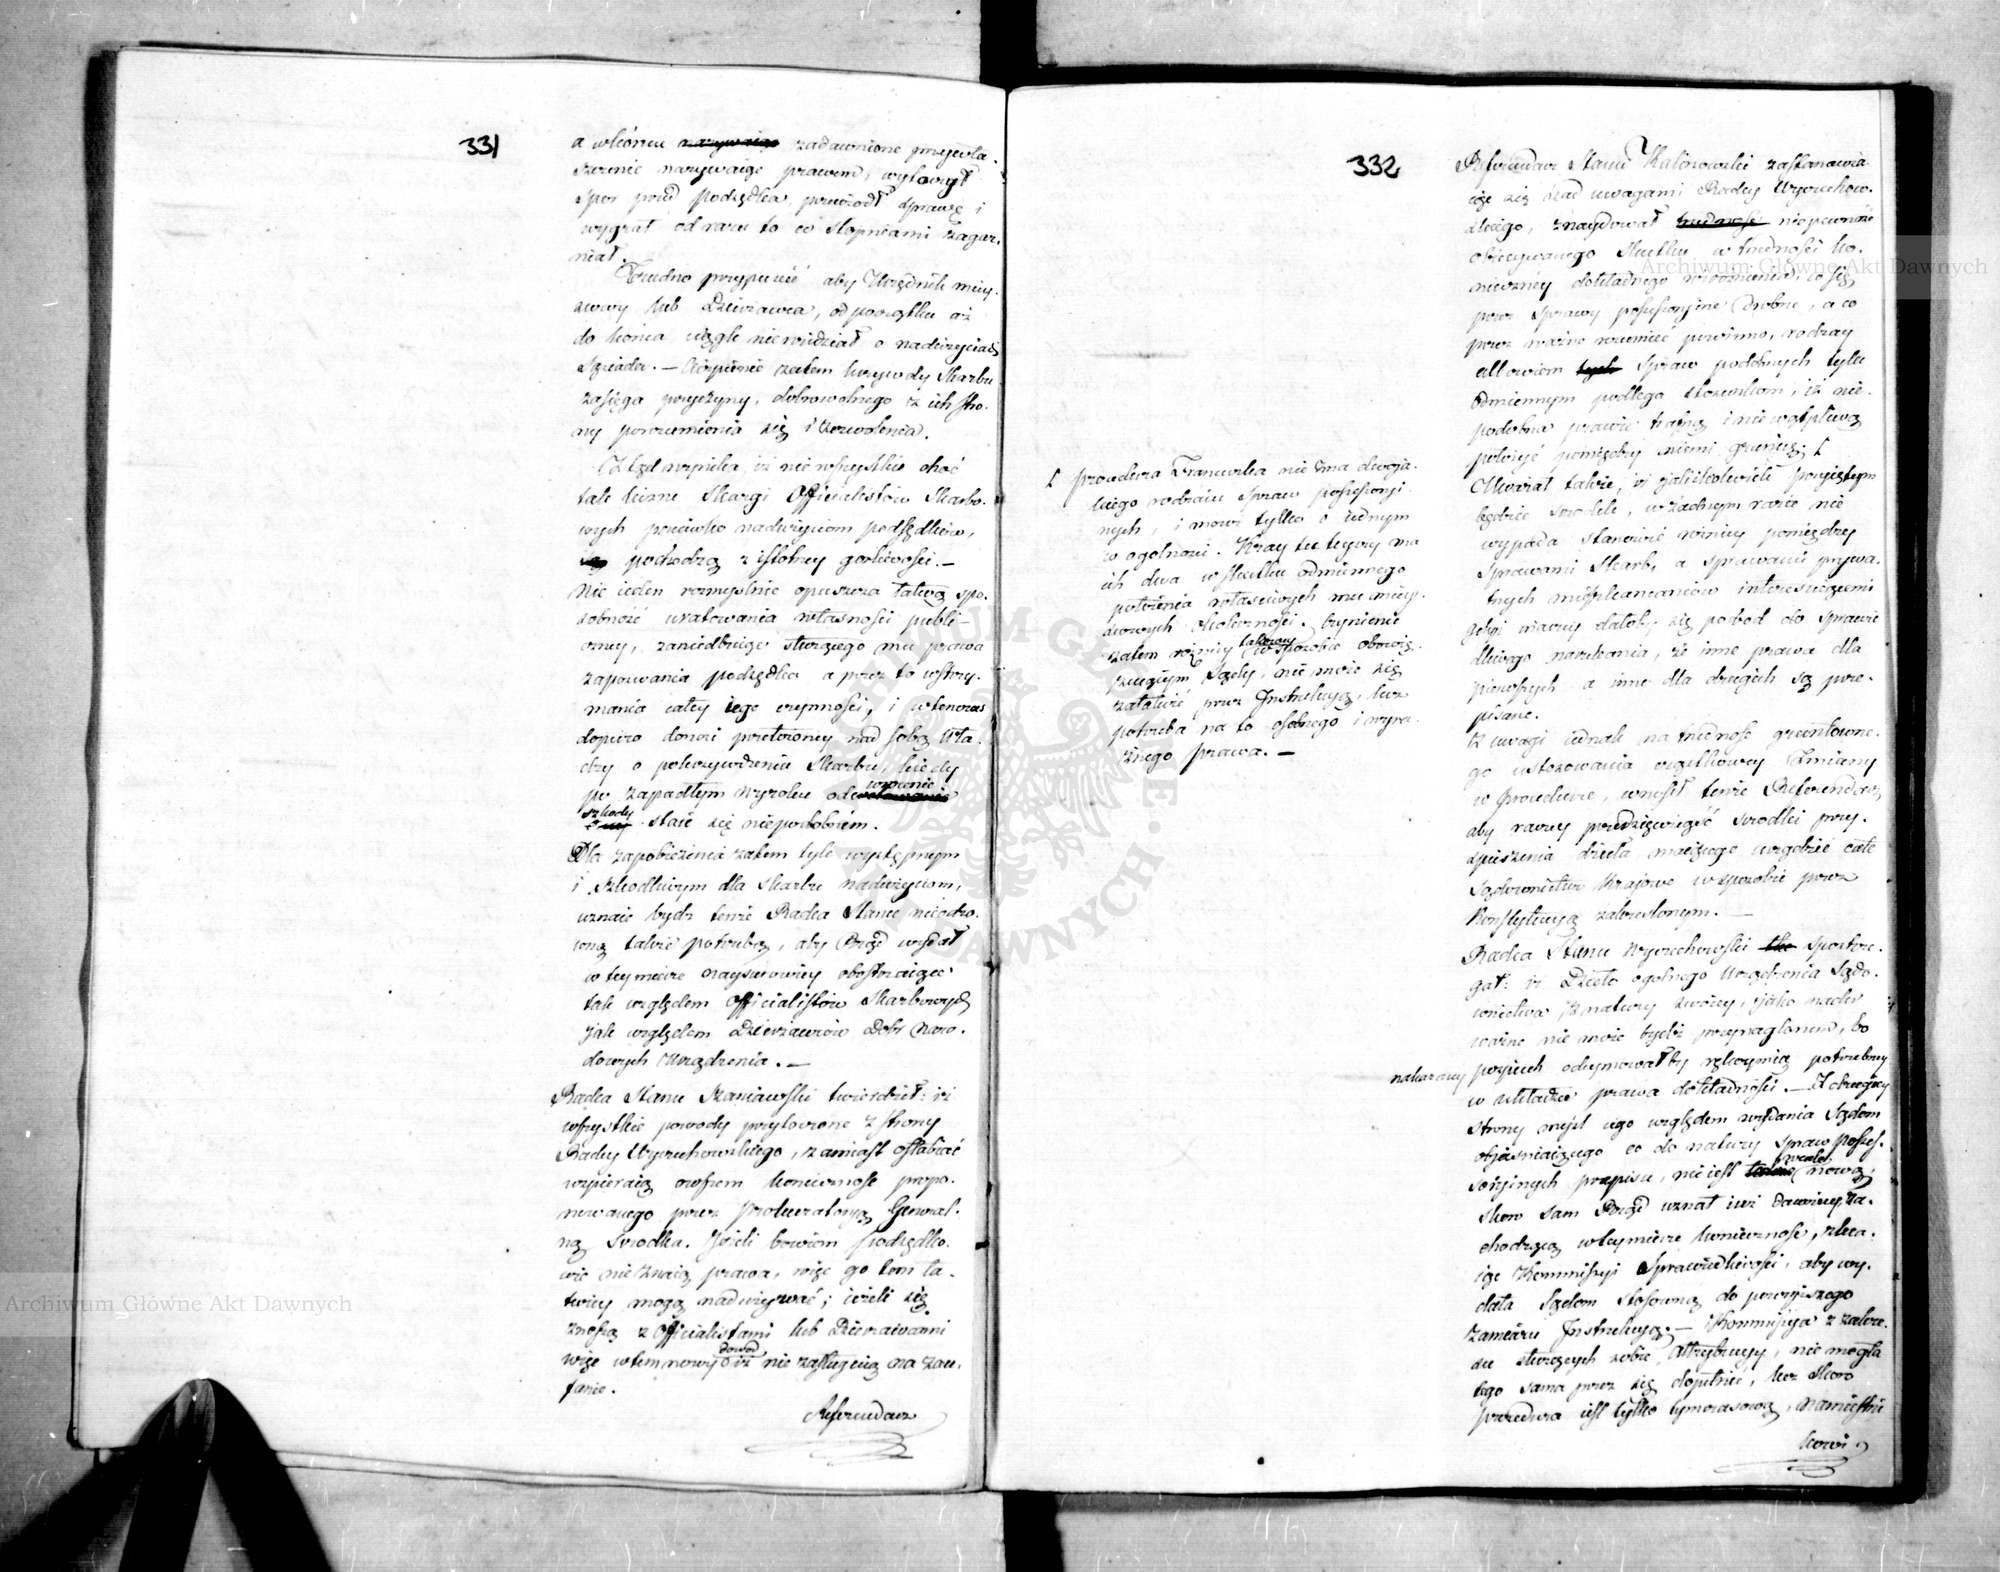 331
a wkońcu nazywaiąc zadawnione przywła-
szczenie nazywaiąc prawem, wytoczył
spór przed Podsędka, powiódł sprawę i
wygrał od razu to co stopniami zagar-
niał.
Trudno przypuścić aby Urzędnik miey-
scowy lub Dzierżawca, od początku aż
do końca ciągle niewiedział o nadużyciach
Sąsiada. — Cierpienie zatem krzywdy Skarbu
zasięga przyczyny, dobrowolnego z ich stro-
ny porozumienia się i zezwolenia.
Ztąd wynika, iż nie wszystkie choć
tak liczne Skargi Officialistów Skarbo-
wych przeciwko nadużyciom podsędków,
pochodzą z istotney gorliwości. —
Nie ieden rozmyślnie opuszcza łatwą spo-
sobność uratowania własności publi-
czney, zaniedbuiąc służącego mu prawa
zapozwania podsędka a przez to wstrzy-
mania całey iego czynności, i wtenczas
dopiero donosi przełożoney nad sobą Wła-
dzy o pokrzywdzeniu Skarbu, kiedy
po zapadłym wyroku
szkody staie się niepodobném.
Dla zapobieżenia zatem tyle występnym
i szkodliwym dla skarbu nadużyciom,
uznaie bydź tenże Radca Stanu nieodzo-
wną także potrzebą, aby Rząd wydał
w tey mierze naysurowiey obostrzaiące
tak względem Officialistów Skarbowych
jak względem Dzierżawców Dóbr Naro-
dowych Urządzenia. —
Radca Stanu Szaniawski twierdził: iż
wszystkie powody przytoczone z strony
Radcy Wyczechowskiego, zamiast osłabiać
wspieraią owszem konieczność propo-
nowanego przez Prokuratoryą General-
ną środka. Jeżeli bowiem podsędko-
wie nieznaią prawa, więc go tem ła-
twiey mogą nadużywać; ieżeli się
znoszą z Officialistami lub Dzierżawcami
więc w tem nowy dowód iż nie zasługuią na zau-
fanie.
Referendarz
332
Referendarz Stanu Kalinowski zastanawia-
iąc się nad uwagami Radcy Wyczechow-
skiego, znaydował trudność niepewność
obiecywanego skutku w trudności ko-
nieczney dokładnego rozróżnienia, co się
przez sprawy possessoryjne drobne, a co
przez ważne rozumieć powinno, rodzay
albowiem tych spraw podobnych tylu
odmiennym podlega stosunkom, iż nie-
podobna prawie trafną i nie wątpliwą
położyć pomiędzy niemi granicę;
Uważał także, iż jakikolwiek przyiętym
będzie środek, w żadnym razie nie
wypada stanowić różnicy pomiędzy
sprawami Skarbu, a sprawami prywa-
tnych mieszkańców interessuiącemi
gdyż inaczey dałoby się powód do sprawie-
dliwego narzekania, że inne prawa dla
pierwszych a inne dla drugich są prze-
pisane.
Z uwagi iednak na trudność gruntowne-
go ustosowania cząstkowey Zmiany
w procedurze, wnosił tenże Referendarz
aby raczey przedsięwziąść środki przy-
spieszenia dzieła maiącego urządzić całe
Sądownictwo Krajowe w sposobie przez
Konstytucyą zakreślonym. —
Radca Stanu Wyczechowski spostrze-
gał: iż Dzieło ogólnego Urządzenia Sądo-
wnictwa, z natury swoiey, jako nader
ważne nie może bydź przynaglonem, bo
nakazany pośpiech odeymowałby rękoymią potrzebney
w układzie prawa dokładności. — Z drugiey
strony myśl iego względem wydania Sądom
obiaśniaiącego co do natury spraw posses-
soryjnych przepisu, nie iest wcale nową,
skoro sam Rząd uznał iuż dawniey za-
chodzącą w tey mierze konieczność, zleca-
iąc Kommissyi Sprawiedliwości, aby wy-
dała Sądom stosowną do powyższego
zamiaru Instrukcyą. — Kommissya z zakre-
su służących sobie Attrybucyy, nie mogła
tego sama przez się dopełnić, lecz skoro
procedura iest tylko tymczasową, Namiestni-
kowi
[ procedura Francuzka nie zna dwoja-
kiego rodzaiu spraw possessoryj-
nych, i mówi tylko o iednym
w ogólności. Kray tuteyszy ma
ich dwa w skutku odmiennego
położenia właściwych mu miey-
scowych okoliczności. Czynienie
zatem różnicy takowey w sposobie obowią-
zuiącym Sądy, nie może się
załatwić przez Instrukcyą, lecz
potrzeba na to osobnego i wyra-
źnego prawa. —
Archiwum Główne Akt Dawnych
Archiwum Główne Akt Dawnych
ARCHIWUM GŁÓWNE AKT DAWNYCH